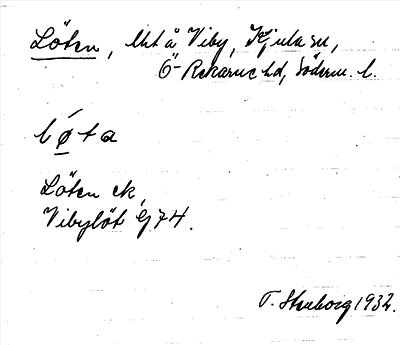 Löten, lht å Viby, Kjula sn,
Ö-Rekarne hd, Söderm. l.
lø̄ta
Löten ek,
Vibylöt Gj 74.
T. Stenborg 1932.